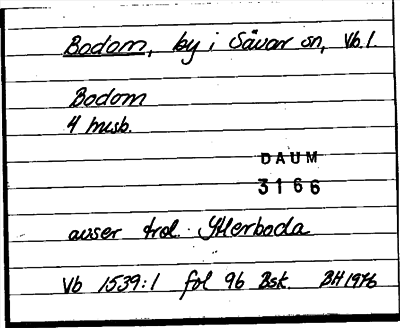 Bodom, by i Sävar sn, Vb.l.
Bodom
4 husb.
DAUM
3166
avser trol. Ytterboda
Vb 1539:1 fol 96 Bsk. BH 1976